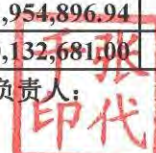 ,954,896.94
,132,681.00
负责人：
张代
丁印